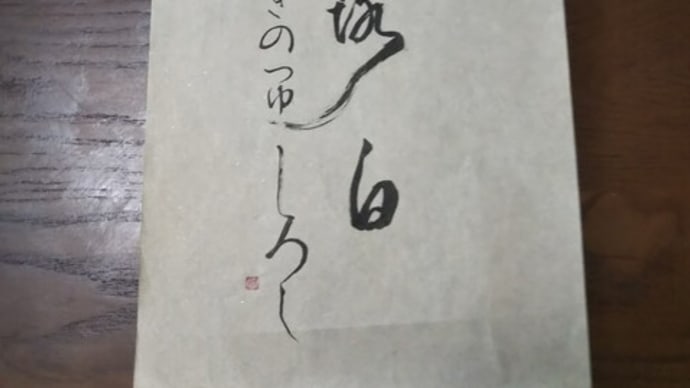 白
のつゆしろし